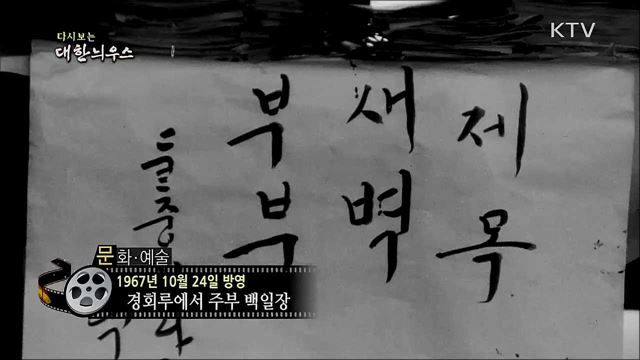 다시보는
대한늬우스
KTV
제목
새벽
부부
문화·예술
1967년 10월 24일 방영
경회루에서 주부 백일장